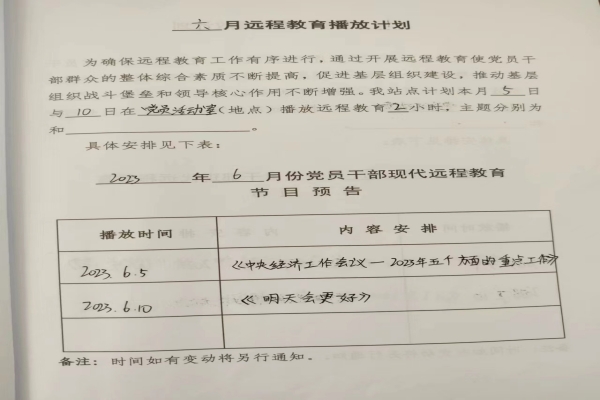 六月远程教育播放计划
为确保远程教育工作有序进行，通过开展远程教育使党员干
部群众的整体综合素质不断提高，促进基层组织建设，推动基层
组织战斗堡垒和领导核心作用不断增强。我站点计划本月 5 日
与 10 日在 党员活动室（地点）播放远程教育 2 小时，主题分别为
和____________________。
具体安排见下表：
2023 年 6 月份党员干部现代远程教育
节目预告
播放时间 内容安排
2023.6.5 《中央经济工作会议一2023年五个方面的重点工作》
2023.6.10 《明天会更好》
备注：时间如有变动将另行通知。